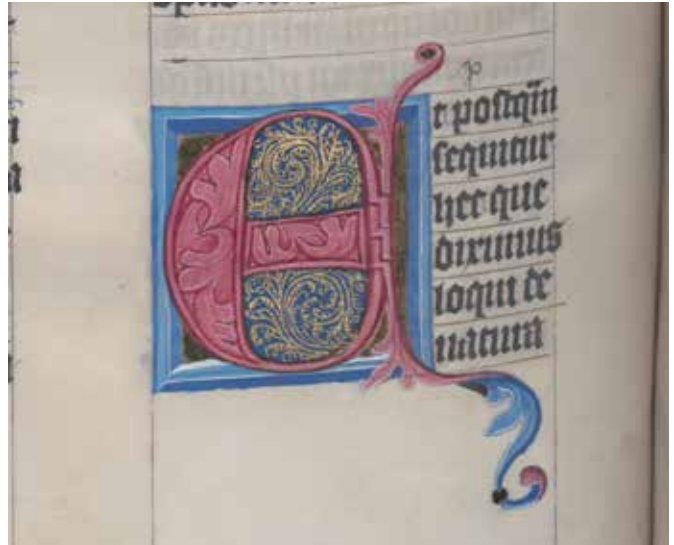 Et poſtqm̄
ſequitur
hec que
diximus
loqui de
natura